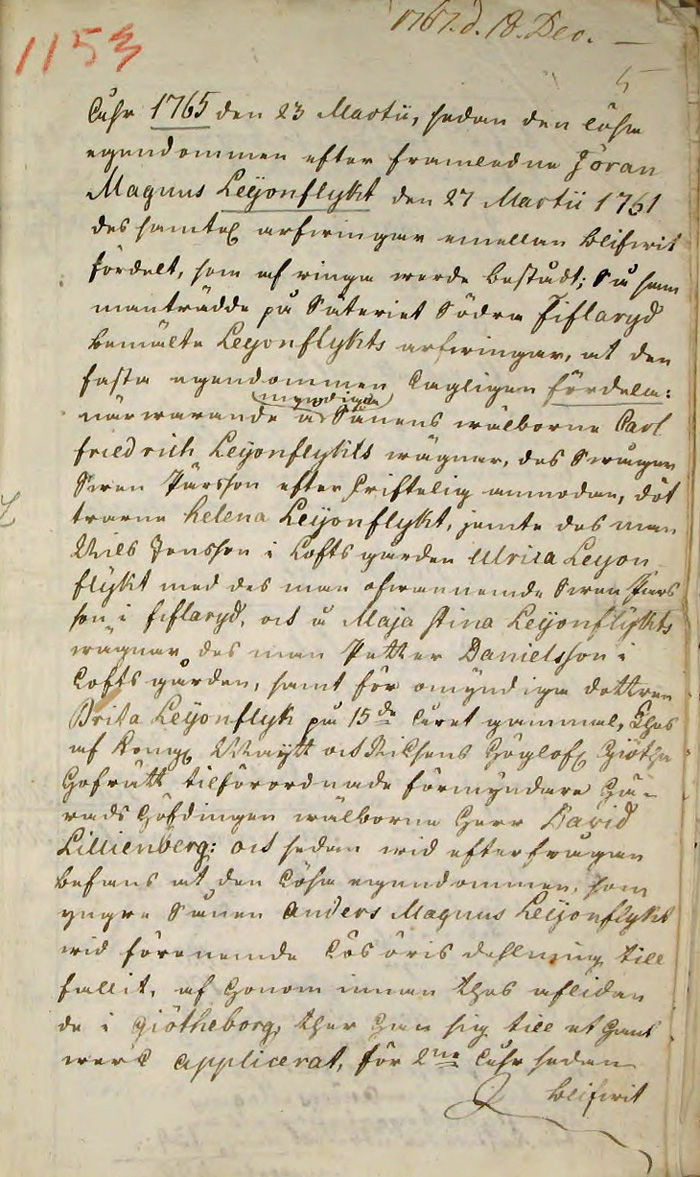 1767. d. 18. Dec.
1153
5
Åhr 1765 den 23 Martii, sedan den lösa
egendommen efter framledne Jöran
Magnus Leijonflykt den 27 Martii 1761
des samtel arfwingar emellan blifwit
fördelt, som af ringa werde bestådt; Så sam
manträdde på Säteriet Södra Fiflaryd
bemälte Leyonflykts arfwingar, at den
fasta egendommen lagligen fördela:
(myndige)
närwarande å Sånens wälborne Carl
friedrich Leijonflykts wägnar, des Swåger
Swen Pärsson efter skriftelig anmodan, döt
trarne helena Leijonflykt, jemte des man
Nils Jonsson i Loftsgården Ulrica Leyon
flykt med des man ofwannemde Swen Pärs
son i fiflaryd, och å Maja stina Leijonflykts
wägnar des man Petter Danielsson i
Loftsgården, samt för omyndiga dottren
Brita Leijonflyk på 15de året gammal, thes
af Kongl Maijtt och Rikhens Höglofl Giötha
Hofrätt tilförordnade förmyndare Hä-
rads Höfdingen wälborne Herr David
Lillienberg: och sedan wid efterfrågan
befans at den lösa egendommen, som
yngre Sånen Anders Magnus Leijonflykt
wid förenemde lösöris dehlning till
fallit, af honom innan thes afliden
de i Giötheborg, ther han sig till et hant
werk applicerat, för 2ne åhr sedan
blifwit